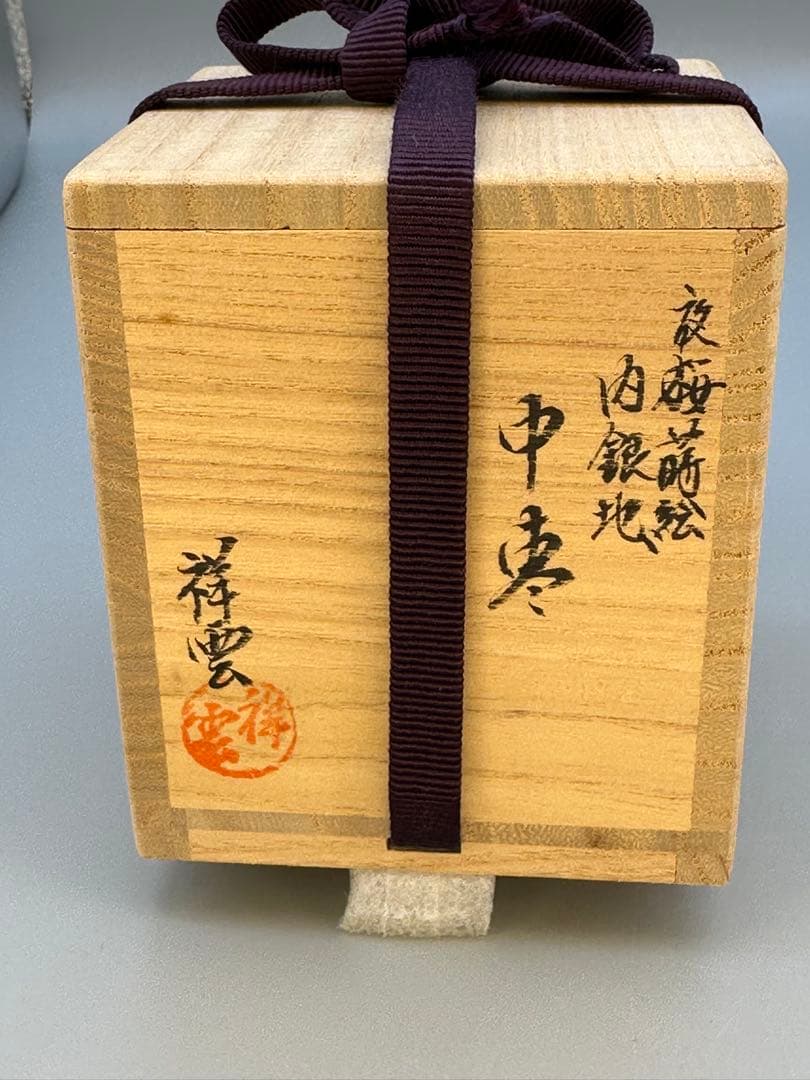 夜桜蒔絵
内銀地
中棗
祥雲
祥雲